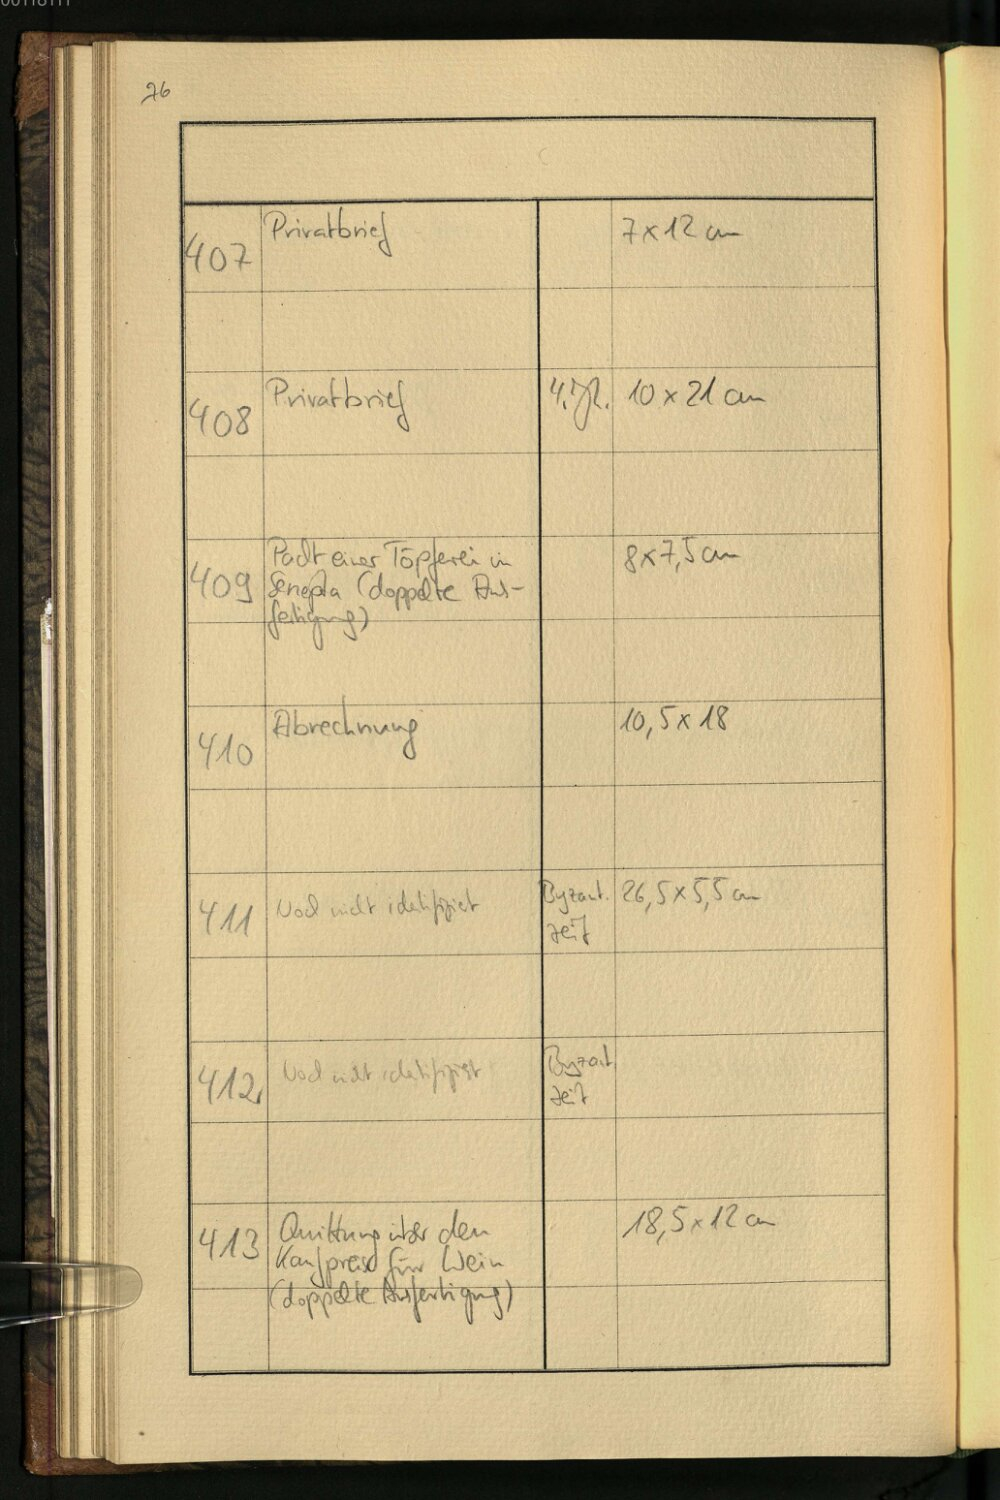 00118111
76
407 Privatbrief 7 x 12 cm
408 Privatbrief 4. Jh. 10 x 21 cm
409 Pacht einer Töpferei in 8 x 7,5 cm
Senepta (doppelte Aus-
fertigung)
410 Abrechnung 10,5 x 18
411 Noch nicht identifiziert Byzant. 26,5 x 5,5 cm
Zeit
412 Noch nicht identifiziert Byzant.
Zeit
413 Quittung über den 18,5 x 12 cm
Kaufpreis für Wein
(doppelte Ausfertigung)